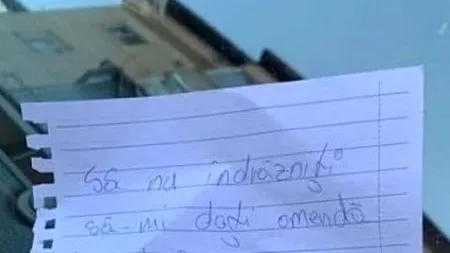 Să nu îndrăzniți
să-mi dați omendă